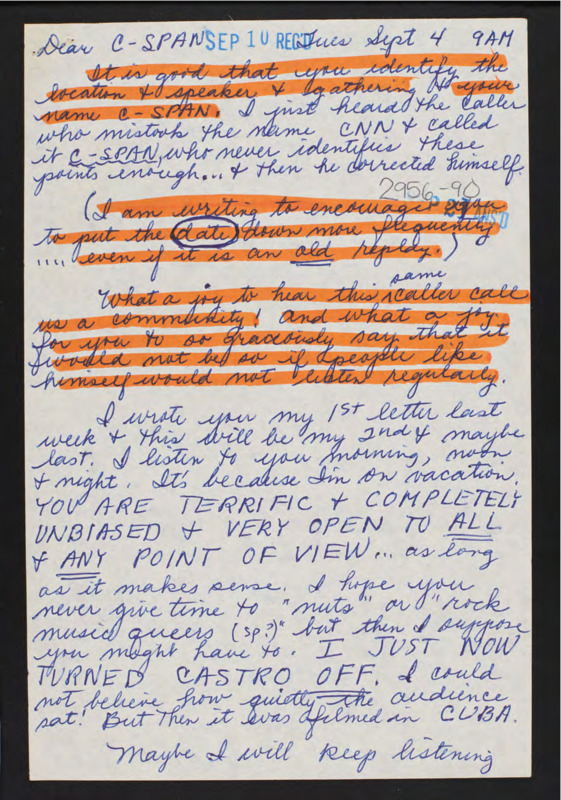 Dear C-SPAN SEP 10 REC'D Tues Sept 4 9AM
It is good that you identify the
location & speaker & gathering & your
name C-SPAN. I just heard the caller
who mistook the name CNN & called
it C-SPAN, who never identifies these
points enough... & then he corrected himself.
2956-90
(I am writing to encourage you
to put the date down more frequently
.... even if it is an old replay.)
same
What a joy to hear this caller call
us a community! And what a joy
for you to so graciously say that it
would not be so if people like
himself would not listen regularly.
I wrote you my 1st letter last
week & this will be my 2nd & maybe
last. I listen to you morning, noon
& night. It's because I'm on vacation.
YOU ARE TERRIFIC & COMPLETELY
UNBIASED & VERY OPEN TO ALL
& ANY POINT OF VIEW... as long
as it makes sense. I hope you
never give time to "nuts" or "rock
music queers (sp?)" but then I suppose
you might have to. I JUST NOW
TURNED CASTRO OFF. I could
not believe how quietly the audience
sat! But then it was filmed in CUBA.
Maybe I will keep listening